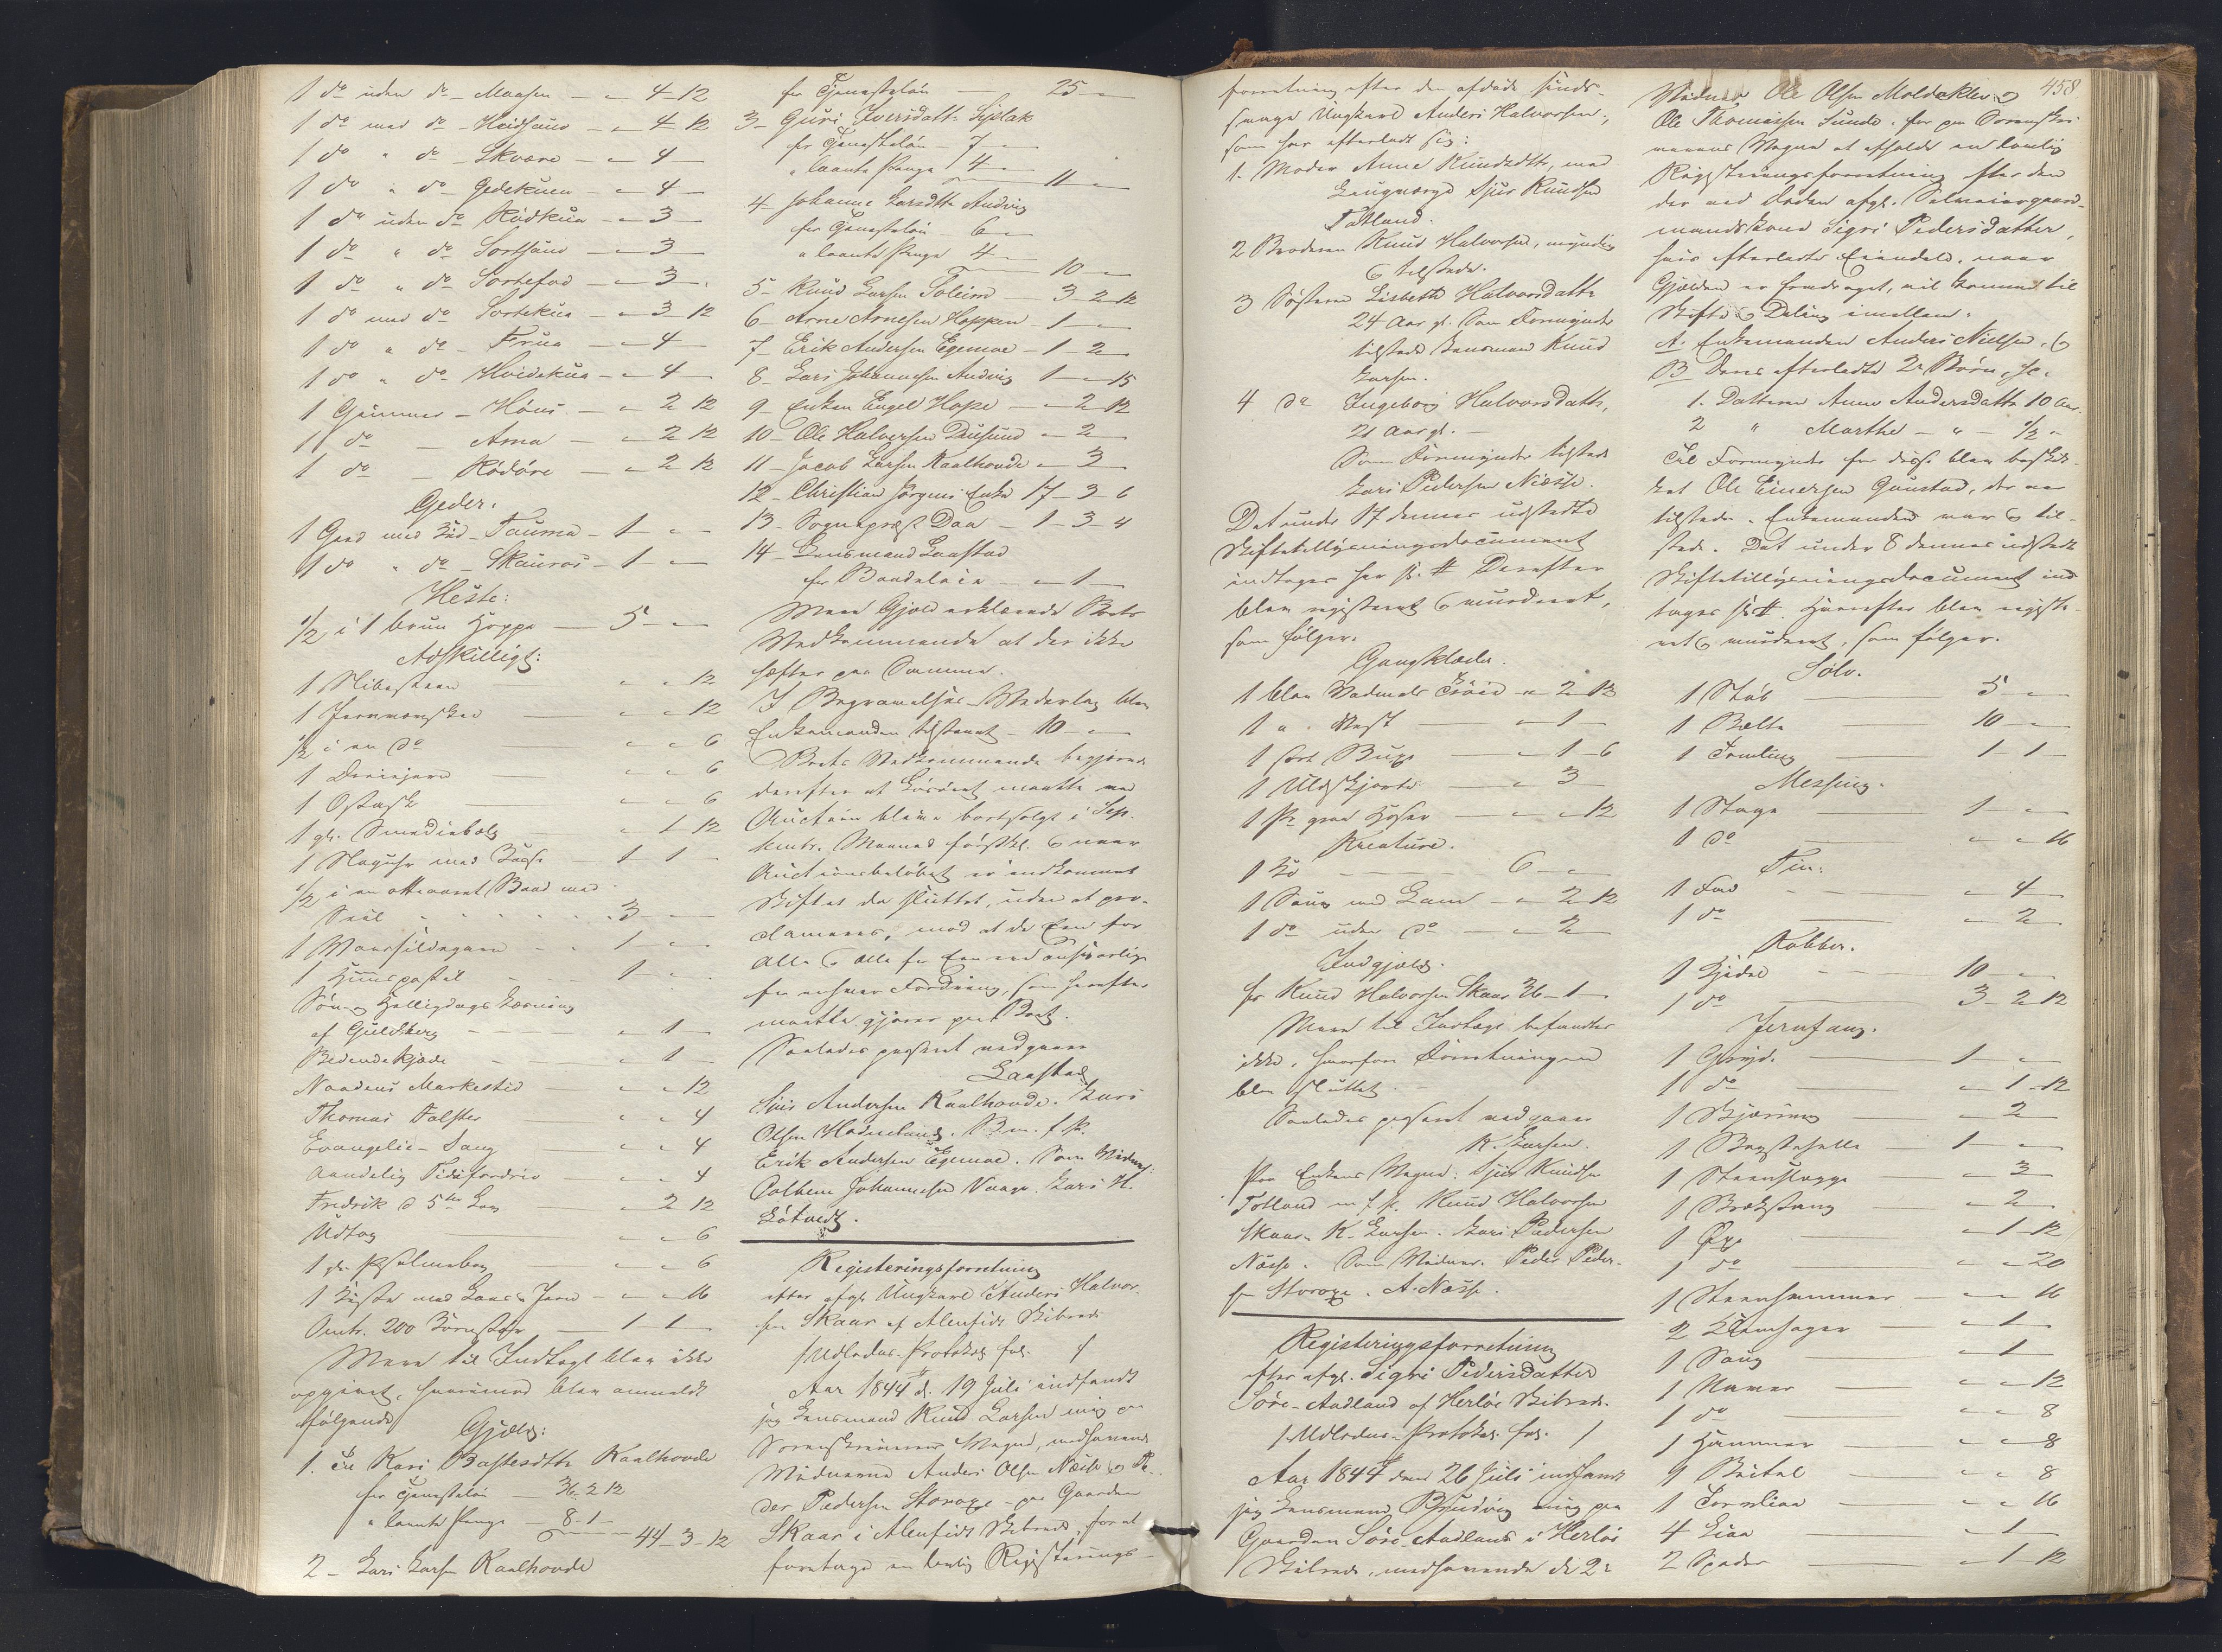 1 do uden do - Maasen - " 4-12
1 do med do - Heidsaus - " 4-12
1 do " do - Skvære - " 4 -
1 do " do - Gedekuen - " 4 -
1 do uden do Rødkua - " 3 -
1 do " do Sortsaus - " 3 -
1 do " do Sortefod - " 3 -
1 do med do Sortekua - " 3-12
1 do " do - Frua - " 4 -
1 do " do Hvidekua - " 4 -
1 Gimmer - Høns - " 2 12
1 do - Arna - " 2 12
1 do - Rødøre - " 2 12
Geder.
1 Geed med Kid - Fauma - 1 - "
1 do " do - Skauros - 1 - "
Heste:
1/2 i 1 bruun Hoppe - 5 - "
Adskilligt:
1 Slibesteen " " 12
1 Jernvowsked " " 12
1/2 i en do " " 6
1 Dreiejern " " 6
1 Ostask " " 6
1 gl. Smediebælg " 1 12
1 Slaguhr med Kasse 1 1 -
1/2 i en otteaaret Baad med
Seil 3 - "
1 Vaarsildegarn 1 - "
1 Huuspostil 1 - "
Søn- og Helligdags Læsning
af Guldberg " 1 -
Bedendekjæde " 1 -
Naadens Markestid " " 12
Thomas Falster " " 4
Evangelie-Sang " " 4
Aandelig Tidsfordriv " " 4
Fredrik d 5te Lov " 2 12
Udtog " " 6
1 gl. Psalmebog " " 6
1 Kiste med Laas & Jern - " " 16
Omtr. 200 Tørnstør 1 1 -
Mere til Indtægt blev ikke
opgivet, hvorimod blev anmeldt
følgende
Gjæld:
1. Til Kari Bastesdtr Kaalhovde
for Tjenesteløn - 36-2 12
" laante Penge - 8-1 -
44-3-12
2 - Lars Larsen Kaalhovde
for Tjenesteløn 25 - "
3 - Guri Iversdatr. Siplak
for Tjenesteløn 7 - "
" laante Penge 4 - "
11 - "
4 - Johanne Larsdtr Andvig
for Tjenesteløn - 6 - "
" laante Penge 4 - "
10 - "
5 - Knud Larsen Soleim - 3-2-12
6 - Arne Arnesen Hoppen - 1 - "
7 - Erik Andersen Egemoe - 1-2 -
8 - Lars Johannesen Andvig 1 - " 15
9 - Enken Engel Hope - " 2-12
10 - Ole Halvorsen Duesund - " 2 -
11 - Jacob Larsen Kaalhovde - " 3 -
12 - Christian Jørgens Enke 17-3-6
13 - Sognepræst Daa - 1-3-4
14 - Lensmand Laastad
for Baadeleie - " 1 -
Mere Gjæld erklærede Boets
Vedkommende at der ikke
hæfter paa Samme.
I Begravelses-Vederlag blev
Enkemanden tilstaaet - 10 - "
Boets Vedkommende begjærede
derefter at Løsøret maatte ved
Auction blive bortsolgt i Sep-
tembr. Maaned førstkl. og naar
Auctionsbeløbet er indkommet
Skiftet da sluttet, uden at pro-
clameres, mod at de Een for
Alle og Alle for Een ere ansvarlige
for enhver Fordring, som herefter
maatte gjøres paa Boet.
Saaledes passeret vedgaaer
Laastad
Siur Andersen Kaalhovde. Lars
Olsen Hodneland. B. m. f. P.
Erik Andersen Egemoe. Som Vidner:
Colbein Johannesen Vaage. Lars H.
Løtvedt.
Registeringsforretning
efter afgl. Ungkarl Anders Halvor-
sen Skaar af Alenfidt Skibrede
/ Udlodns. Protokol fol. /
Aar 1844 d. 19 Juli indfandt
jeg Lensmand Knud Larsen mig paa
Sorenskriverens Vegne, medhavende
Vidnerne Anders Olsen Næsse og Pe-
der Pedersen Storoxe - paa Gaarden
Skaar i Alenfidt Skibrede, for at
foretage en lovlig Registerings-
458
forretning efter den afdøde sinds-
svage Ungkarl Anders Halvorsen,
som har efterladt sig:
1. Moder Anne Knudsdtr, med
Laugværge Sjur Knudsen
Totland.
2 Broderen Knud Halvorsen, myndig
og tilstede.
3 Søsteren Lisbeth Halvorsdatter
24 Aar gl. Som Formynder
tilstede Lensmand Knud
Larsen.
4 do Ingeborg Halvorsdatter,
21 Aar gl. -
Som Formynder tilstede
Lars Pedersen Næsse.
Det under 17 dennes udstedte
Skiftetillysningsdocument
indtages her sk. # Derefter
blev registeret og vurderet,
som følger.
Gangklæder.
1 blaa Vadmels Trøie - " 2-12
1 " Vest - " 1 -
1 sort Buxe - " 1-6
1 Uldskjorte - " 3 -
1 Pr. graa Hoser - " " 12
Kreature.
1 Ko 6 - "
1 Sau med Lam - " 2 12
1 do uden do - " 2 -
Indgjæld.
hos Knud Halvorsen Skaar 36-1 -
Mere til Indtægt befandtes
ikke, hvorfor Forretningen
blev sluttet. -
Saaledes passeret vedgaaer
K. Larsen.
Paa Enkens Vegne: Sjur Knudsen
Totland m. f. P. Knud Halvorsen
Skaar. K. Larsen. Lars Pedersen
Næsse. Som Vidner. Peder Peder-
sen Storoxe. A. Næsse.
Registeringsforretning
efter afgl. Sigri Pedersdatter
Søre-Audland af Herlø Skibrede.
/ Udlodns. Protokol fol. /
Aar 1844 den 26 Juli indfandt
jeg Lensmand Brudvig mig paa
Gaarden Søre-Audland i Herløe
Skibrede, medhavende de 2
Vidner Ole Olsen Moldeklev og
Ole Thomassen Sunde, for paa Sorenskri-
verens Vegne at afholde en lovlig
Registeringsforretning efter den
der ved Døden afgl. Selveiergaard-
mandskone Sigri Pedersdatter,
hvis efterladte Eiendele, naar
Gjælden er fradraget, vil komme til
Skifte og Deling imellem:
A. Enkemanden Anders Nielsen, og
B Deres efterladte 2 Børn, sc.
1. Datteren Anne Andersdatter 10 Aar
2 " Marthe - " - 1/2 "
Til Formynder for disse blev beskik-
ket Ole Einersen Gunstad, der var
tilstede. Enkemanden var og til-
stede. Det under 8 dennes udstedte
Skiftetillysningsdocument ind-
tages sk. #. Hvorefter blev registe-
ret og vurderet, som følger.
Sølv.
1 Støb 5 - "
1 Belte 10 - "
1 Tomling 1-1 -
Messing.
1 Stage 1 - "
1 do " " 16
Tin:
1 Fad " 4 -
1 do " 2 -
Kobber.
1 Kjedel 10 - "
1 do 3-2 12
Jernfang.
1 Gryde 1 - "
1 do " 1-12
1 Skjæring " 2 -
1 Bagstehelle 1 - "
1 Steenslægge " 3 -
1 Brækstang " 2 -
1 Øxe " 1-12
1 do " " 20
1 Steenhammer " " 16
2 " 1 -
1 Saug " 1 -
1 Naver " " 12
1 do " " 8
1 Hammer " " 8
1 " " 8
1 " " 16
4 Liaa " 1 -
2 Spader " 1-12